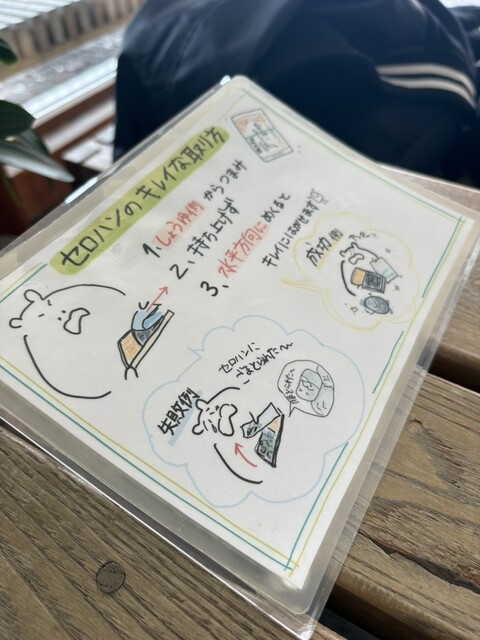 セロハンのキレイな取り方
1. しょう油側からつまみ
2. 持ち上げず
3. 水平方向にめくると
キレイにはがせます
成功例
失敗例
セロハンに
ごまとられた〜